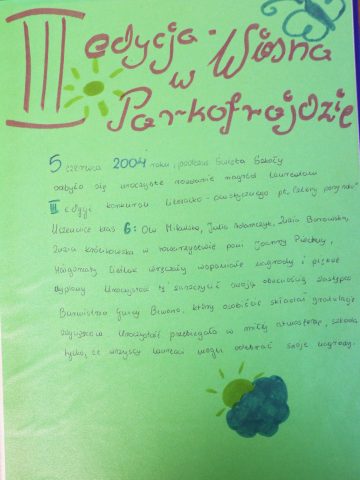 III edycja - Wiosna
w
Parkofrajdzie
5 czerwca 2004 roku, podczas Święta Szkoły
odbyło się uroczyste rozdanie nagród laureatom
III edycji konkursu literacko - plastycznego pt. Cztery pory roku
Uczennice klas 6: Ola Mikulska, Julia Adamczyk, Zuzia Borowska,
Zuzia Królikowska w towarzystwie pani Joanny
Małgorzaty wręczały wspaniałe nagrody i piękne
dyplomy. Uroczystość tę zaszczycił swoją obecnością zastępca
Burmistrza Gminy który osobiście składał gratulacje
Uroczystość przebiegała w miłej atmosferze, szkoda
tylko, że wszyscy laureaci mogli odebrać swoje nagrody.